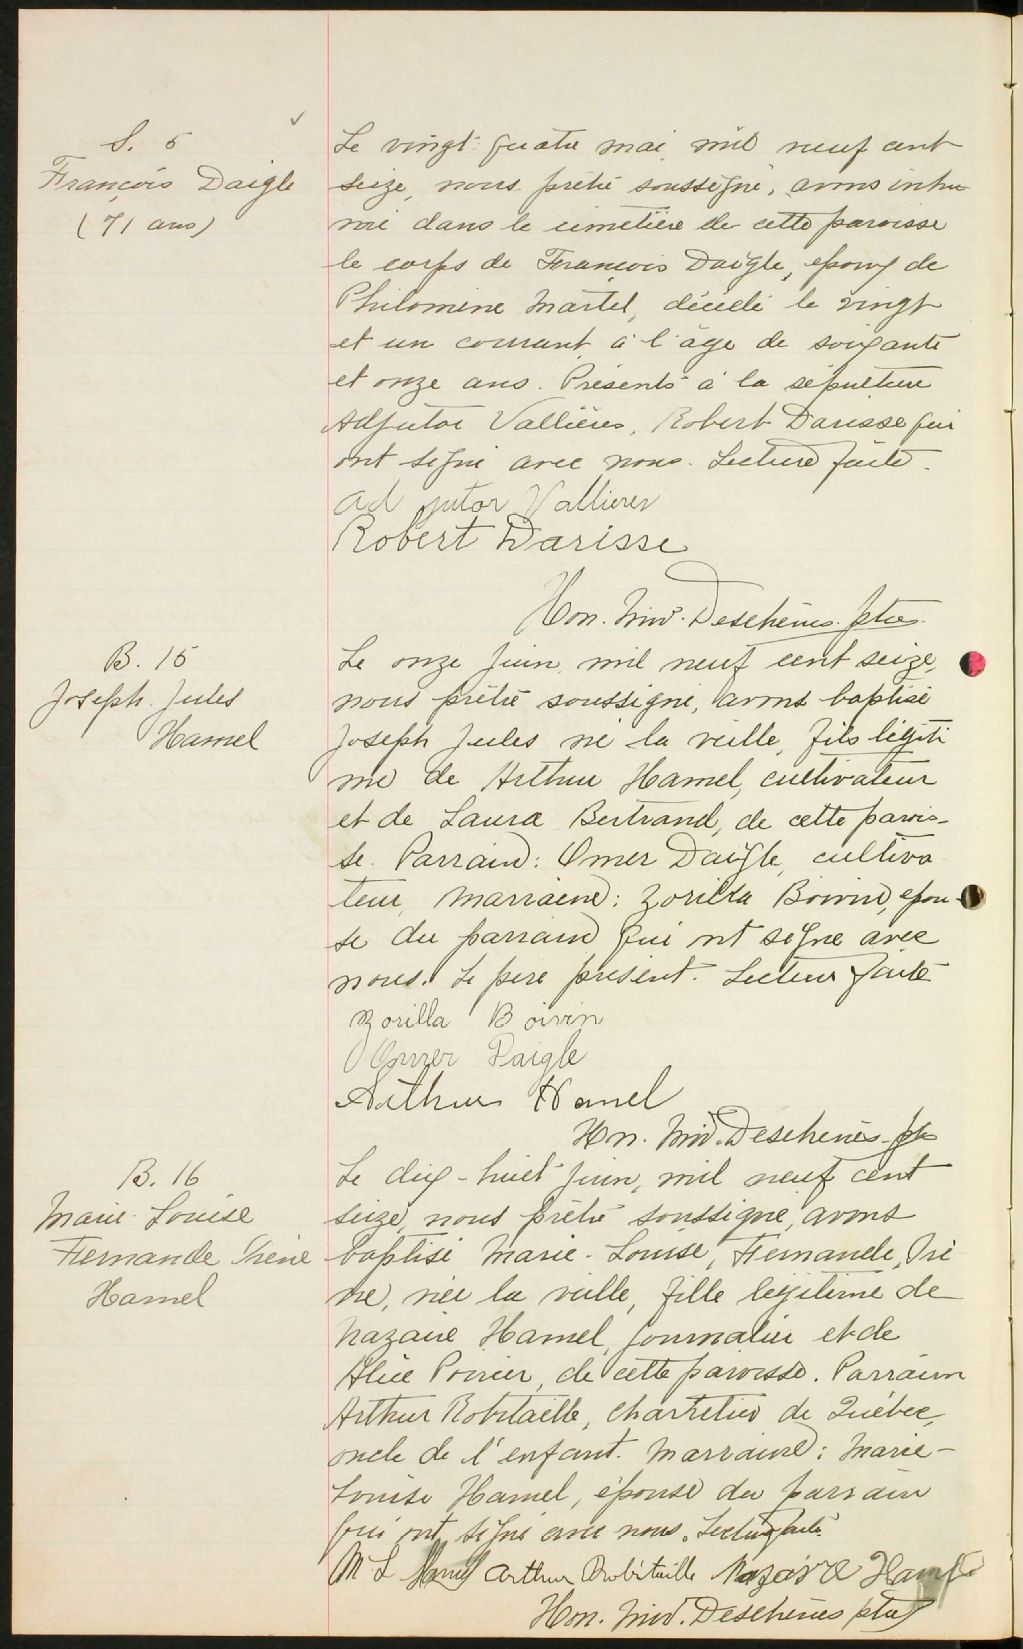 S. 6
François Daigle
(71 ans)
Le vingt-quatre mai mil neuf cent
seize, nous prêtre soussigné, avons inhu-
mé dans le cimetière de cette paroisse
le corps de François Daigle, époux de
Philomène Martel, décédé le vingt
et un courant, à l'âge de soixante
et onze ans. Présents à la sépulture
Adjutor Vallières, Robert Darisse qui
ont signé avec nous. Lecture faite.
Adjutor Vallieres
Robert Darisse
Hon. Miv. Deschênes ptre.
B. 15
Joseph Jules
Hamel
Le onze juin mil neuf cent seize,
nous prêtre soussigné, avons baptisé
Joseph Jules né la veille, fils légiti
me de Arthur Hamel, cultivateur
et de Laura Bertrand, de cette parois-
se. Parrain: Omer Daigle, cultiva
teur, Marraine: Zorilla Boivin, épou-
se du parrain qui ont signé avec
nous. Le père présent. Lecture faite
Zorilla Boivin
Omer Daigle
Arthur Hamel
Hon. Miv. Deschênes ptre
B. 16
Marie-Louise
Fernande Irène
Hamel
Le dix-huit juin, mil neuf cent
seize, nous prêtre soussigné, avons
baptisé Marie-Louise, Fernande, Irè
ne, née la veille, fille légitime de
Nazaire Hamel, journalier et de
Alice Poirier, de cette paroisse. Parrain
Arthur Robitaille, charretier de Québec,
oncle de l'enfant. Marraine: Marie-
Louise Hamel, épouse du parrain
qui ont signé avec nous. Lecture faite.
M L Hamel Arthur Robitaille Nazaire Hamel
Hon. Miv. Deschênes ptre